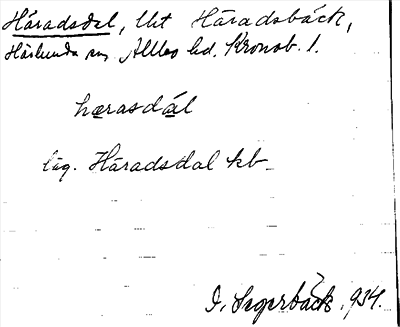 Häradsdal, lht Häradsbäck,
Härlunda sn, Allbo hd. Kronob. l.
hærasdál
läg. Häradsdal kb
I. Segerbäck. 1934.